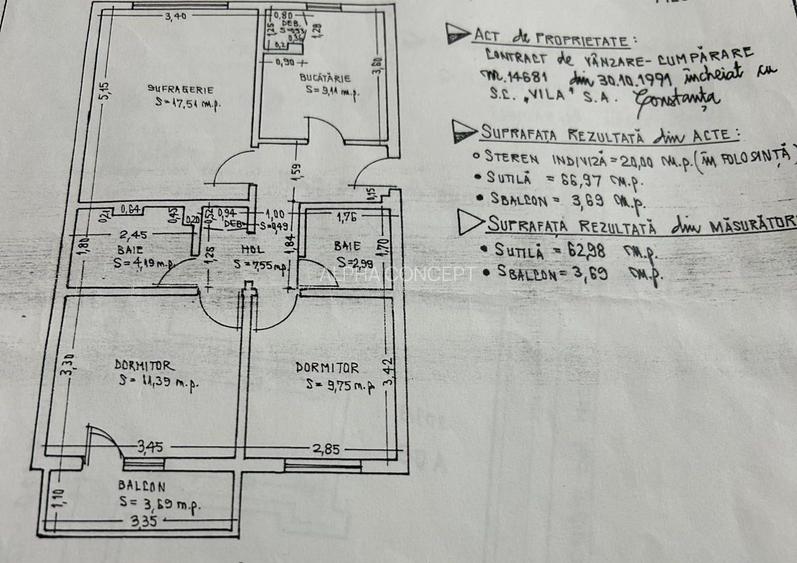 3,40
5,15
SUFRAGERIE
S=17,51 m.p.
0,80
DEB.
1,25
1,28
0,90
BUCĂTĂRIE
S=9,11 m.p.
3,60
1,59
1,15
0,21
0,64
0,45
0,20
2,45
1,80
BAIE
S=4,19 m.p.
0,52
0,94
DEB.
1,00
S=0,49
1,28
HOL
S=7,55 m.p.
1,84
1,76
BAIE
S=2,99
1,70
ALPHA CONCEPT
DORMITOR
S=11,39 m.p.
3,30
3,45
DORMITOR
S=9,75 m.p
3,42
2,85
BALCON
S=3,69 m.p.
1,10
3,35
ACT de PROPRIETATE:
CONTRACT de VÂNZARE-CUMPĂRARE
nr.14681 din 30.10.1991 încheiat cu
S.C. "VILA" S.A. Constanța
SUPRAFAȚA REZULTATĂ din ACTE:
STEREN INDIVIZĂ=20,00 m.p.(în FOLOSINȚĂ)
SUTILĂ = 66,97 m.p.
SBALCON= 3,69 m.p.
SUPRAFAȚA REZULTATĂ din MĂSURĂTORI
SUTILĂ = 62,98 m.p.
SBALCON= 3,69 m.p.